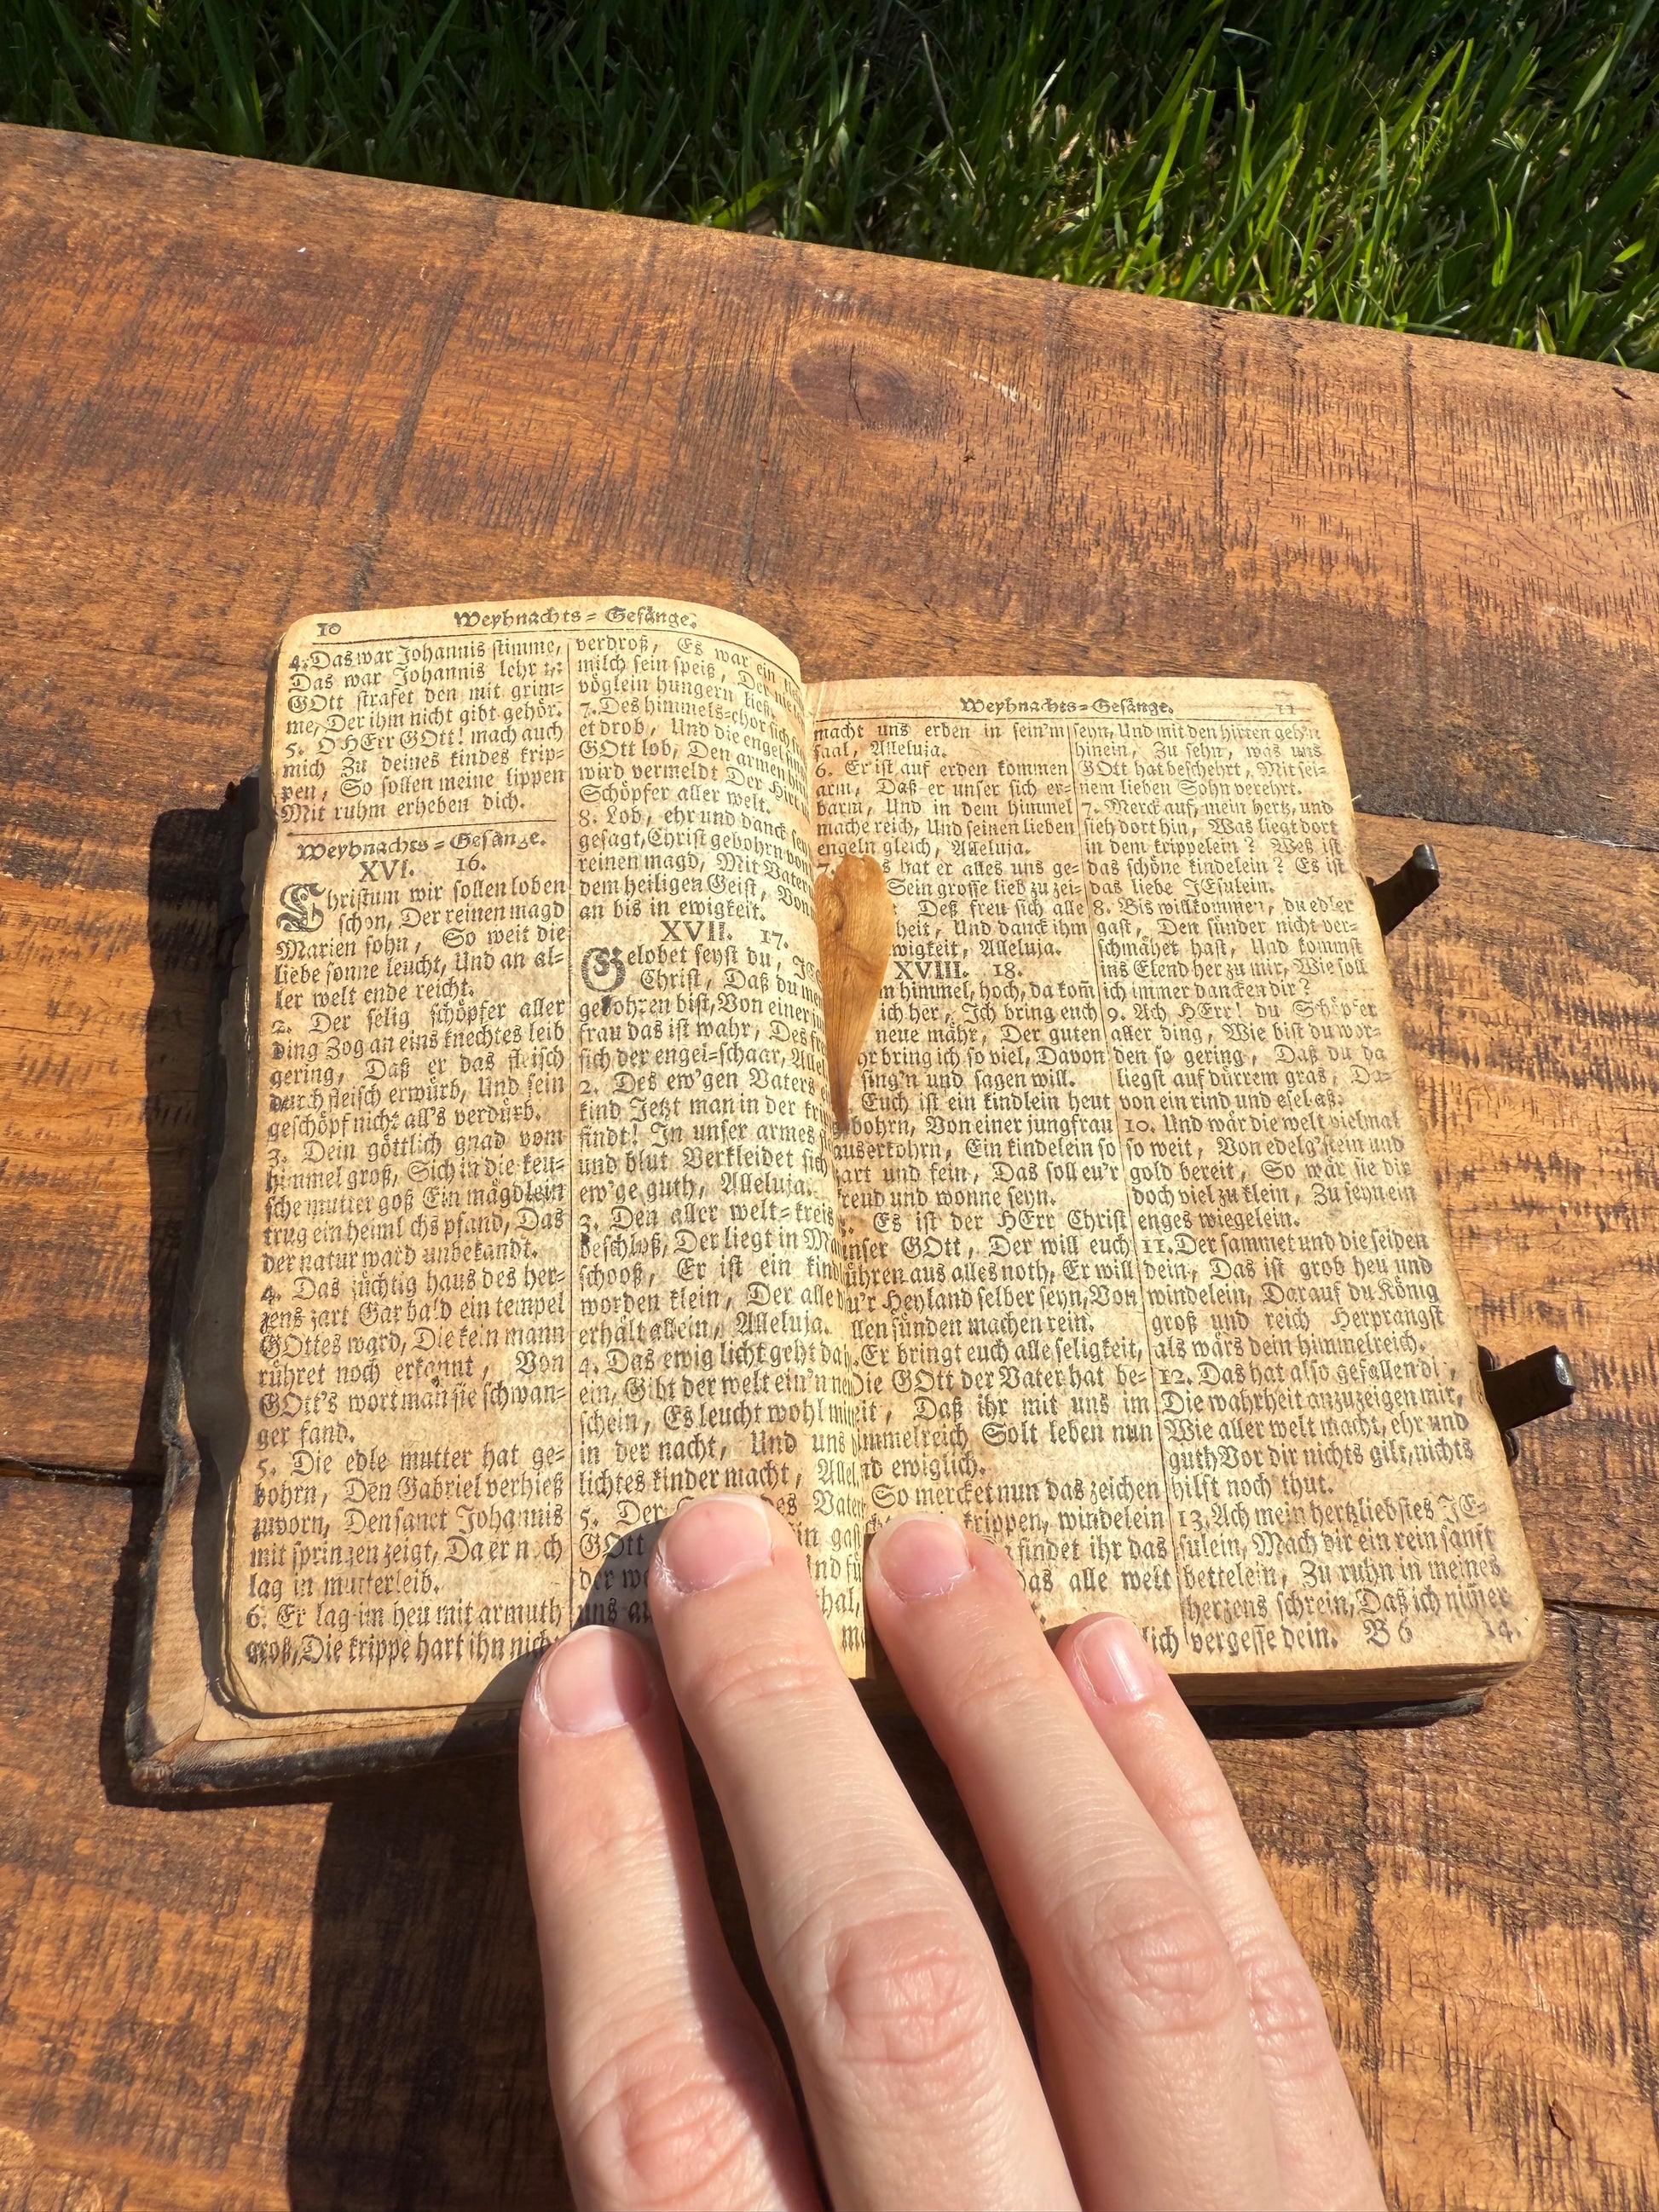 10 Weyhnachts=Gesänge.
4. Das war Johannis stimme,
Das war Johannis lehr :,:
GOtt strafet den mit grim=
me, Der ihm nicht gibt gehör.
5. O HErr GOtt! mach auch
mich Zu deines kindes krip=
pen, So sollen meine lippen
Mit ruhm erheben dich.
Weyhnachts=Gesänge.
XVI. 16.
Christum wir sollen loben
schon, Der reinen magd
Marien sohn, So weit die
liebe sonne leucht, Und an al=
ler welt ende reicht.
2. Der selig schöpfer aller
ding Zog an eins knechtes leib
gering, Daß er das fleisch
durch fleisch erwürb, Und sein
geschöpf nicht all's verdürb.
3. Dein göttlich gnad vom
himmel groß, Sich in die keu=
sche mutter goß Ein mägdlein
trug ein heiml chs pfand, Das
der natur ward unbekandt.
4. Das züchtig haus des her=
zens zart Gar bald ein tempel
GOttes ward, Die kein mann
rühret noch erkannt, Von
GOtt's wort man sie schwan=
ger fand.
5. Die edle mutter hat ge=
bohrn, Den Gabriel verhieß
zuvorn, Den sanct Johannis
mit springen zeigt, Da er n ch
lag in mutterleib.
6. Er lag im heu mit armuth
groß, Die krippe hart ihn nicht
verdroß, Es war ein
milch sein speiß, Der nie
vöglein hungern ließ.
7. Des himmels=chor sich
et drob, Und die engel
GOtt lob, Den armen
wird vermeldt Der Hirt
Schöpfer aller welt.
8. Lob, ehr und danck sey
gesagt, Christ gebohrn von
reinen magd, Mit Vater
dem heiligen Geist, Von
an bis in ewigkeit.
XVII. 17.
Gelobet seyst du,
Christ, Daß du
gebohren bist, Von einer
frau das ist wahr, Des
sich der engel=schaar,
2. Des ew'gen Vaters
kind Jetzt man in der
findt! In unser armes
und blut Verkleidet sich
ew'ge guth, Alleluja.
3. Den aller welt=kreis
beschloß, Der liegt in
schooß, Er ist ein
worden klein, Der alle
erhält allein, Alleluja.
4. Das ewig licht geht da
ein, Gibt der welt ein'n
schein, Es leucht wohl
in der nacht, Und uns
lichtes kinder macht,
5. Der des
GOtt in
der
uns
Weyhnachts=Gesänge. 11
macht uns erben in sein'm
saal, Alleluja.
6. Er ist auf erden kommen
arm, Daß er unser sich er=
barm, Und in dem himmel
mache reich, Und seinen lieben
engeln gleich, Alleluja.
7. hat er alles uns ge=
Sein grosse lieb zu zei=
Deß freu sich alle
Und danck ihm
Alleluja.
XVIII. 18.
himmel, hoch, da kom̃
ich her, Ich bring euch
neue mähr, Der guten
bring ich so viel, Davon
sing'n und sagen will.
Euch ist ein kindlein heut
Von einer jungfrau
auserkohrn, Ein kindelein so
und fein, Das soll eu'r
und wonne seyn.
Es ist der HErr Christ
unser GOtt, Der will euch
aus alles noth, Er will
Heyland selber seyn, Von
sünden machen rein.
Er bringt euch alle seligkeit,
Die GOtt der Vater hat be=
Daß ihr mit uns im
Solt leben nun
ewiglich.
So mercket nun das zeichen
krippen, windelein
findet ihr das
alle welt
seyn, Und mit den hirten geh'n
hinein, Zu sehn, was uns
GOtt hat beschehrt, Mit sei=
nem lieben Sohn verehrt.
7. Merck auf, mein hertz, und
sieh dort hin, Was liegt dort
in dem krippelein? Weß ist
das schöne kindelein? Es ist
das liebe JEsulein.
8. Bis willkommen, du edler
gast, Den sünder nicht ver=
schmähet hast, Und kommst
ins Elend her zu mir, Wie soll
ich immer dancken dir?
9. Ach HErr! du Schöpfer
aller ding, Wie bist du wor=
den so gering, Daß du da
liegst auf dürrem gras, Da=
von ein rind und esel aß.
10. Und wär die welt vielmal
so weit, Von edelg'stein und
gold bereit, So wär sie dir
doch viel zu klein, Zu seyn ein
enges wiegelein.
11. Der sammet und die seiden
dein, Das ist grob heu und
windelein, Darauf du König
groß und reich Herprangst
als wärs dein himmelreich.
12. Das hat also gefallen di ,
Die wahrheit anzuzeigen mir,
Wie aller welt macht, ehr und
guth Vor dir nichts gilt, nichts
hilft noch thut.
13. Ach mein hertzliebstes JE=
sulein, Mach dir ein rein sanft
bettelein, Zu ruhn in meines
herzens schrein, Daß ich nim̃er
vergesse dein. B 6 14.